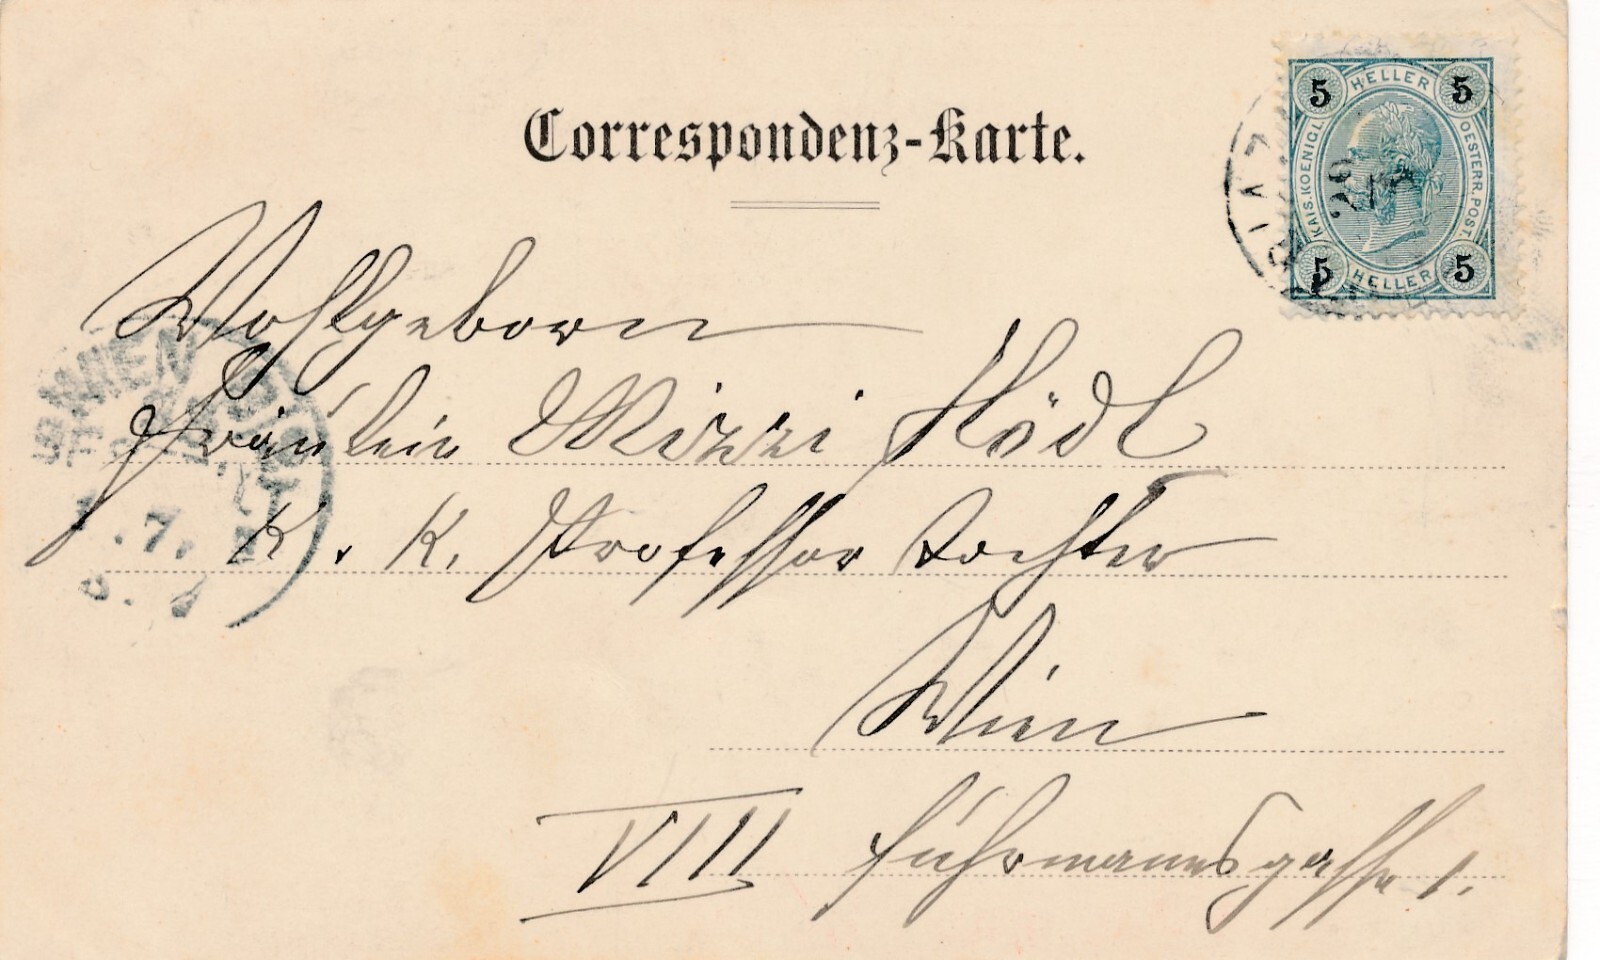 Correspondenz-Karte.
5 HELLER 5
KAIS. KOENIGL. OESTERR. POST.
5 HELLER 5
Wohlgeborn
WIEN
Fräulein Mizzi Hödl
K. K. Professor Tochter
Wien
VIII Fuhrmannsgasse 1.